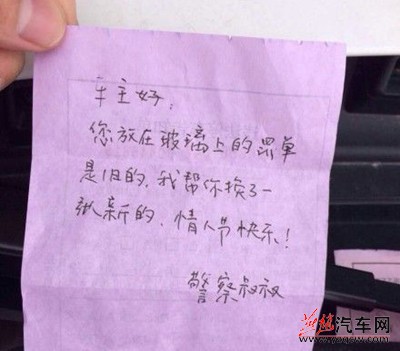 车主好：
您放在玻璃上的罚单
是旧的，我帮你换了一
张新的，情人节快乐！
警察叔叔
汽车网